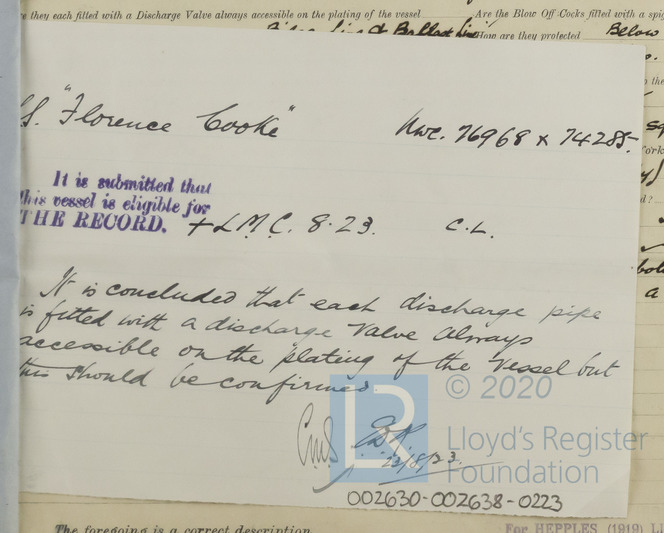 re they each fitted with a Discharge Valve always accessible on the plating of the vessel
Are the Blow Off Cocks fitted with a spig
How are they protected
Below
S. "Florence Cooke"
Nwc. 76968 x 74285.
It is submitted that
this vessel is eligible for
THE RECORD.
+ L.M.C. 8.23.
C.L.
It is concluded that each discharge pipe
is fitted with a discharge Valve always
accessible on the plating of the Vessel but
this should be confirmed
22/8/23
LR
© 2020
Lloyd's Register
Foundation
002630-002638-0223
The foregoing is a correct description.
For HEPPLES (1919) LI